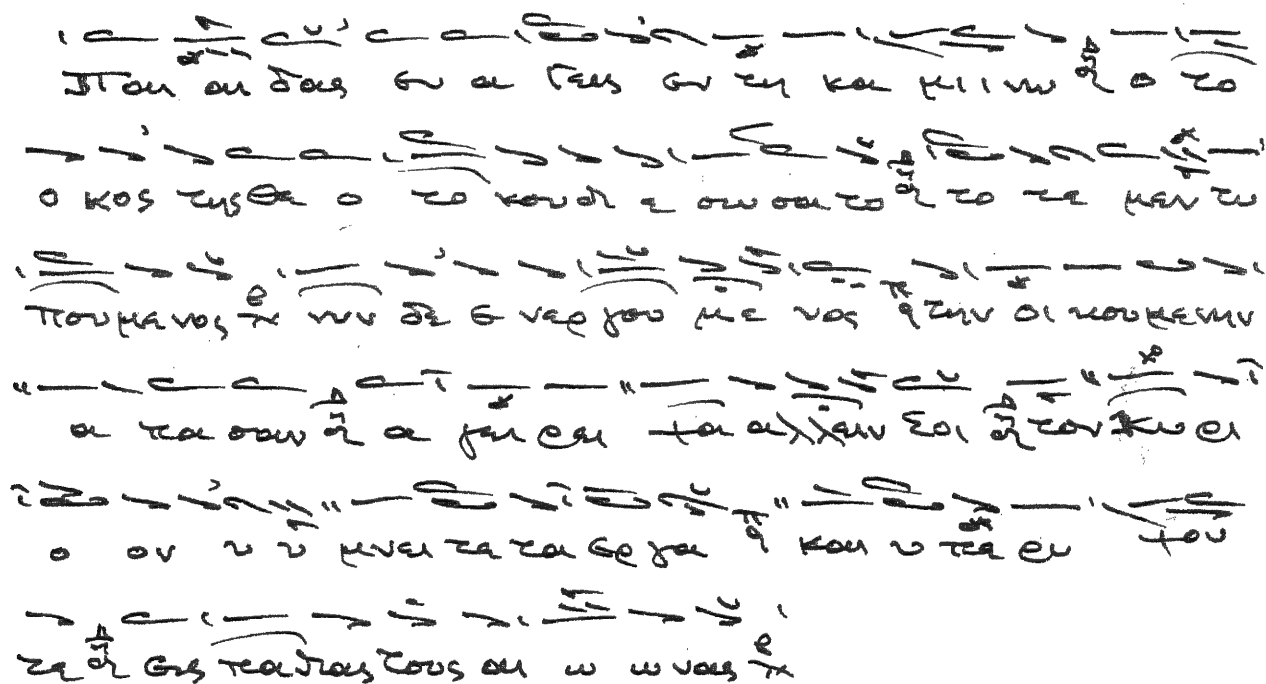 Παι αι δας ευ α γεις εν τη κα μι ι νω ο το
ο κος της θε ο το κου δι ε σω σα το το τε μεν τυ
που με νος νυν δε ε νερ γου με νος την οι κου με νην
α πα σαν α γει ρει ψα αλ λειν σοι τον Κυ ρι
ο ον υ υ μνει τε τα ερ γα και υ πε ρυ ψου
τε εις παντας τους αι ω ω νας